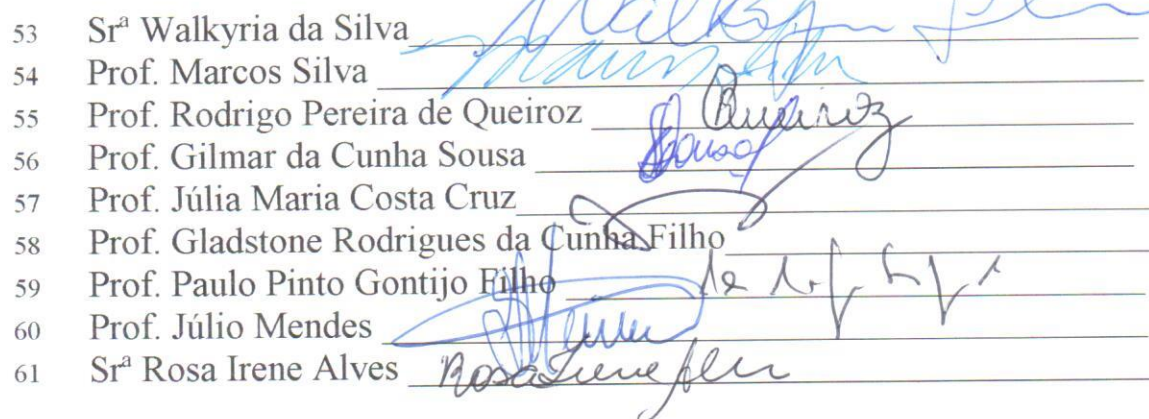 53 Srª Walkyria da Silva
54 Prof. Marcos Silva
55 Prof. Rodrigo Pereira de Queiroz Queiroz
56 Prof. Gilmar da Cunha Sousa Sousa
57 Prof. Júlia Maria Costa Cruz
58 Prof. Gladstone Rodrigues da Cunha Filho
59 Prof. Paulo Pinto Gontijo Filho
60 Prof. Júlio Mendes
61 Srª Rosa Irene Alves Rosa Irene